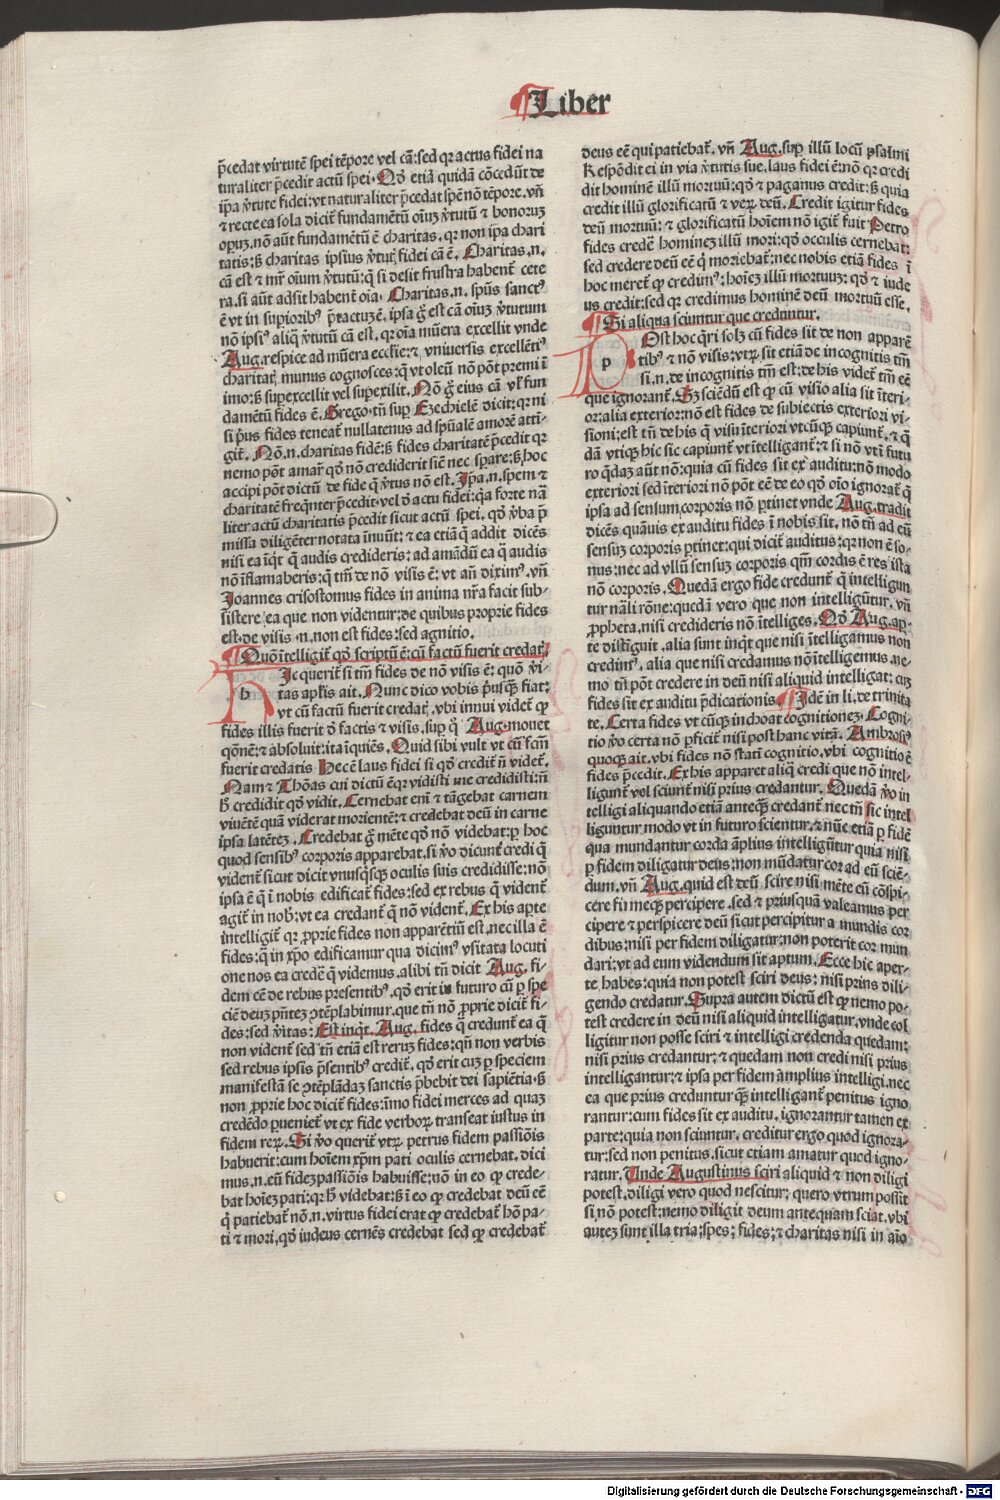 Liber
p̃cedat virtutē spei tẽpore vel cã: sed qꝛ actus fidei na
turaliter p̃cedit actũ spei. Qd̓ etiã quidã cõcedũt de
ipa v̓tute fidei: vt naturaliter p̃cedat spẽ nõ tẽpore. vñ
⁊ recte ea sola dicit̃ fundamẽtũ oĩuʒ v̓tutũ ⁊ bonoruʒ
opuʒ. nõ aũt fundamẽtũ ẽ charitas. qꝛ non ipa chari
tatis: ꝫ charitas ipsius v̓tutꝭ fidei cã ẽ. Charitas .n.
cã est ⁊ mr̃ oĩum v̓tutũ: q̃ si desit frustra habent̃ cete
ra. si aũt adsit habent̃ oĩa. Charitas .n. spũs sanctꝰ
ẽ vt in supioribꝰ p̃tactuʒ ẽ. ipsa g̃ est cã oĩuʒ v̓tutum
nõ ipsiꝰ aliq̃ v̓tutũ cã est. qꝛ oĩa mũera excellit vnde
Aug. respice ad mũera ecclie: ⁊ vniuersis excellẽtiꝰ
charitatꝭ munus cognosces: q̃ vt oleũ nõ põt premi ĩ
imo: ꝫ supexcellit vel supexilit. Nõ g̃ eius cã vl̓ fun
damẽtũ fides ẽ. Grego. tñ sup Ezechielẽ dicit: qꝛ ni
si p̓us fides teneat̃ nullatenus ad spũalẽ amorẽ atti-
git̃. Nõ .n. charitas fidẽ: ꝫ fides charitatẽ p̃cedit qꝛ
nemo põt amar̃ qd̓ nõ crediderit sic̃ nec spare: ꝫ hoc
accipi põt dictũ de fide q̃ v̓tus nõ est. Ipa .n. spem ⁊
charitatẽ freq̃nter p̃cedit. vel d̓ actu fidei: q̃a forte nã
liter actũ charitatis p̃cedit sicut actũ spei. qd̓ v̓ba p̃
missa diligẽter notata ĩnuũt: ⁊ ea etiã q̃ addit dicẽs
nisi ea ĩqt̃ q̃ audis credideris: ad amãdũ ea q̃ audis
nõ ĩflammaberis: q̃ tm̃ de nõ visis ẽ: vt añ diximꝰ. vñ
Joannes crisostomus fides in anima nr̃a facit sub-
sistere ea que non videntur: de quibus proprie fides
est. de visis .n. non est fides: sed agnitio.
Quõ ĩtelligit̃ qd̓ scriptũ ẽ: cũ factũ fuerit credat̃.
h Ic querit̃ si tm̃ fides de nõ visis ẽ: quõ v̓i-
tas aplis ait. Nunc dico vobis p̓usq̃ȝ fiat:
vt cũ factũ fuerit credatꝭ. vbi innui videt̃ ꝙ
fides illis fuerit d̓ factis ⁊ visis. sup q̃ Aug. mouet
qõnẽ: ⁊ absoluit: ita ĩquiẽs. Quid sibi vult vt cũ fcm̃
fuerit credatis Hec ẽ laus fidei si qd̓ credit̃ ñ videt̃.
Nam ⁊ Thõas cui dictũ ẽ qꝛ vidisti me credidisti: ñ
h̓ credidit qd̓ vidit. Cernebat enĩ ⁊ tãgebat carnem
viuẽtẽ quã viderat morientẽ: ⁊ credebat deũ in carne
ipsa latẽteʒ. Credebat g̃ mẽte qd̓ nõ videbat: p hoc
quod sensibꝰ corporis apparebat. si v̓o dicunt̃ credi q̃
vident̃ sicut dicit vnusq̃sqȝ oculis suis credidisse: nõ
ipsa ẽ q̃ ĩ nobis edificat̃ fides: sed ex rebus q̃ vident̃
agit̃ in nob̓: vt ea credant̃ q̃ nõ vident̃. Ex his apte
intelligit̃ qꝛ ꝓprie fides non apparẽtiũ est. nec illa ẽ
fides: q̃ in xp̃o edificamur qua dicimꝰ vsitata locuti
one nos ea credẽ q̃ videmus. alibi tñ dicit Aug. fi-
dem eẽ de rebus presentibꝰ. qd̓ erit in futuro cũ p spe
ciẽ deuʒ pñteʒ ꝯtẽplabimur. que tñ nõ ꝓprie dicit̃ fi-
des: sed v̓itas: Est inqt̃. Aug. fides q̃ credunt̃ ea q̃
non vident̃ sed tñ etiã est reruʒ fides: qñ non verbis
sed rebus ipsis p̃sentibꝰ credit̃. qd̓ erit cuʒ p speciem
manifestã se ꝯtẽplãdaʒ sanctis p̃bebit dei sapiẽtia. ꝫ
non ꝓprie hoc dicit̃ fides: ĩmo fidei merces ad quaʒ
credẽdo pueniet̃ vt ex fide verboꝝ transeat iustus in
fidem reꝝ. Si v̓o querit̃ vtꝝ petrus fidem passiõis
habuerit: cum hoĩem xp̃m pati oculis cernebat. dici
mus .n. eũ fideʒ passiõis habuisse: nõ in eo ꝙ crede-
bat hoĩeʒ pati: qꝛ h̓ videbat: ꝫ ĩ eo ꝙ credebat deũ eẽ
q̃ patiebat̃ nõ .n. virtus fidei erat ꝙ credebat hõ pa-
ti ⁊ mori. qd̓ iudeus cernẽs credebat sed ꝙ credebat̃
deus eẽ qui patiebat̃. vñ Aug. sup illũ locũ psalmi
Respõdit ei in via v̓tutis sue. laus fidei ẽ: nõ qꝛ credi
dit hominẽ illũ mortuũ: qd̓ ⁊ paganus credit: ꝫ quia
credit illũ glorificatũ ⁊ veꝝ deũ. Credit igitur fides
deũ mortuũ: ⁊ glorificatũ hoĩem nõ igit̃ fuit Petro
fides credẽ homineʒ illũ mori: qd̓ occulis cernebat:
sed credere deũ eẽ q̃ moriebat̃: nec nobis etiã fides ĩ
hoc meret̃ ꝙ credimꝰ: hoĩeʒ illũ mortuuʒ: qd̓ ⁊ iude
us credit: sed qꝛ credimus hominẽ deũ mortuũ esse.
Si aliqua sciuntur que creduntur.
p Ost hoc q̃ri solʒ cũ fides sit de non apparẽ
tibꝰ ⁊ nõ visis: vtꝝ sit etiã de incognitis tm̃
si .n. de incognitis tm̃ est: de his videt̃ tm̃ eẽ
que ignorant̃. Sʒ sciẽdũ est ꝙ cũ visio alia sit ĩteri-
or: alia exterior: nõ est fides de subiectis exteriori vi-
sioni: est tñ de his q̃ visu ĩteriori vtcũqȝ capiunt̃. ⁊ q̃
dã vtiqȝ hic sic capiunt̃ vt ĩtelligant̃: ⁊ si nõ vti futu
ro q̃daʒ aũt nõ: quia cũ fides sit ex auditu: nõ modo
exteriori sed ĩteriori nõ põt eẽ de eo qd̓ oĩo ignorat̃ q̃
ipsa ad sensum corporis nõ ptinet vnde Aug. tradit
dicẽs quãuis ex auditu fides ĩ nobis sit. nõ tñ ad eũ
sensuʒ corporis ptinet: qui dicit̃ auditus: qꝛ non ẽ so-
nus: nec ad vllũ sensuʒ corporis qm̃ cordis ẽ res ista
nõ corporis. Quedã ergo fide credunt̃ q̃ intelligun
tur nãli rõne: quedã vero que non intelligũtur. vñ
ꝓpheta. nisi credideris nõ ĩtelliges. Qd̓ Aug. ap-
te distiguit. alia sunt inqt̃ que nisi ĩtelligamus non
credimꝰ. alia que nisi credamus nõ ĩtelligemus. ne-
mo tñ põt credere in deũ nisi aliquid intelligat: cuʒ
fides sit ex auditu p̃dicationis. Jdẽ in li. de trinita
te. Certa fides vt cũqȝ inchoat cognitioneʒ. Cogni-
tio v̓o certa nõ pficit̃ nisi post hanc vitã. Ambrosiꝰ
quoqȝ ait. vbi fides nõ statĩ cognitio. vbi cognitio ẽ
fides p̃cedit. Ex his apparet aliq̃ credi que nõ intel-
ligunt̃ vel sciunt̃ nisi prius credantur. Quedã v̓o in
telligi aliquando etiã anteq̃ȝ credant̃ nec tñ sic intel
liguntur modo vt in futuro scientur. ⁊ nũc etiã p fidẽ
qua mundantur corda ãplius intelligũtur quia nisi
p fidem diligatur deus: non mũdatur cor ad eũ sciẽ-
dum. vñ Aug. quid est deũ scire nisi mẽte eũ cõspi-
cere firmeqȝ percipere. sed ⁊ priusquã valeamus per
cipere ⁊ perspicere deũ sicut percipitur a mundis cor
dibus: nisi per fidem diligatur: non poterit cor mun
dari: vt ad eum videndum sit aptum. Ecce hic aper-
te habes: quia non potest sciri deus: nisi prius dili-
gendo credatur. Supra autem dictũ est ꝙ nemo po-
test credere in deũ nisi aliquid intelligatur. vnde col
ligitur non posse sciri ⁊ intelligi credenda quedam:
nisi prius credantur: ⁊ quedam non credi nisi prius
intelligantur: ⁊ ipsa per fidem amplius intelligi. nec
ea que prius creduntur q̃ȝ intelligant̃ penitus igno
rantur: cum fides sit ex auditu. ignorantur tamen ex
parte: quia non sciuntur. creditur ergo quod ignora-
tur: sed non penitus. sicut etiam amatur quod igno-
ratur. Unde Augustinus sciri aliquid ⁊ non diligi
potest. diligi vero quod nescitur: quero vtrum possit
si nõ potest: nemo diligit deum antequam sciat. vbi
autez sunt illa tria: spes: fides: ⁊ charitas nisi in aĩo
Digitalisierung gefördert durch die Deutsche Forschungsgemeinschaft - DFG